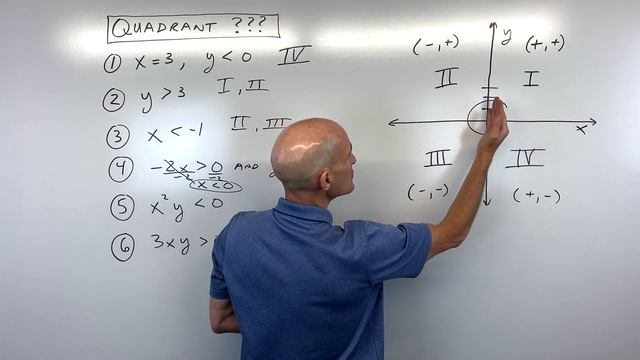 QUADRANT ???
① x=3, y<0 IV
② y>3 I, II
③ x<-1 II, III
④ -2x>0 AND
-2 -2
x<0
⑤ x²y<0
⑥ 3xy>
y
(-,+) (+,+)
II I
x
III IV
(-,-) (+,-)